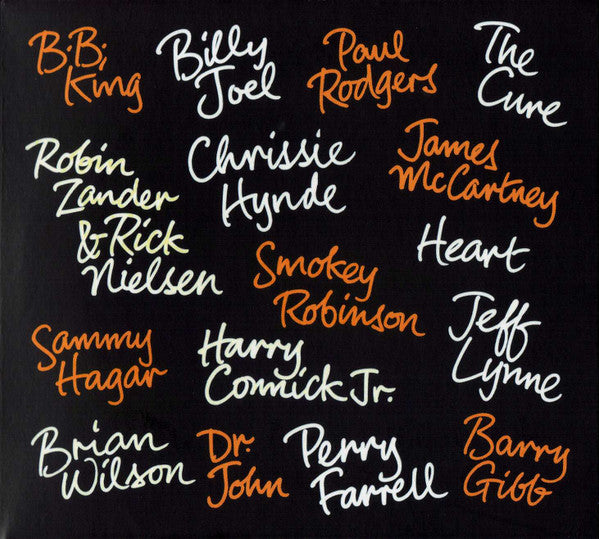 B.B.
King
Billy
Joel
Paul
Rodgers
The
Cure
Robin
Zander
& Rick
Nielsen
Chrissie
Hynde
James
McCartney
Heart
Smokey
Robinson
Sammy
Hagar
Harry
Connick Jr.
Jeff
Lynne
Brian
Wilson
Dr.
John
Perry
Farrell
Barry
Gibb